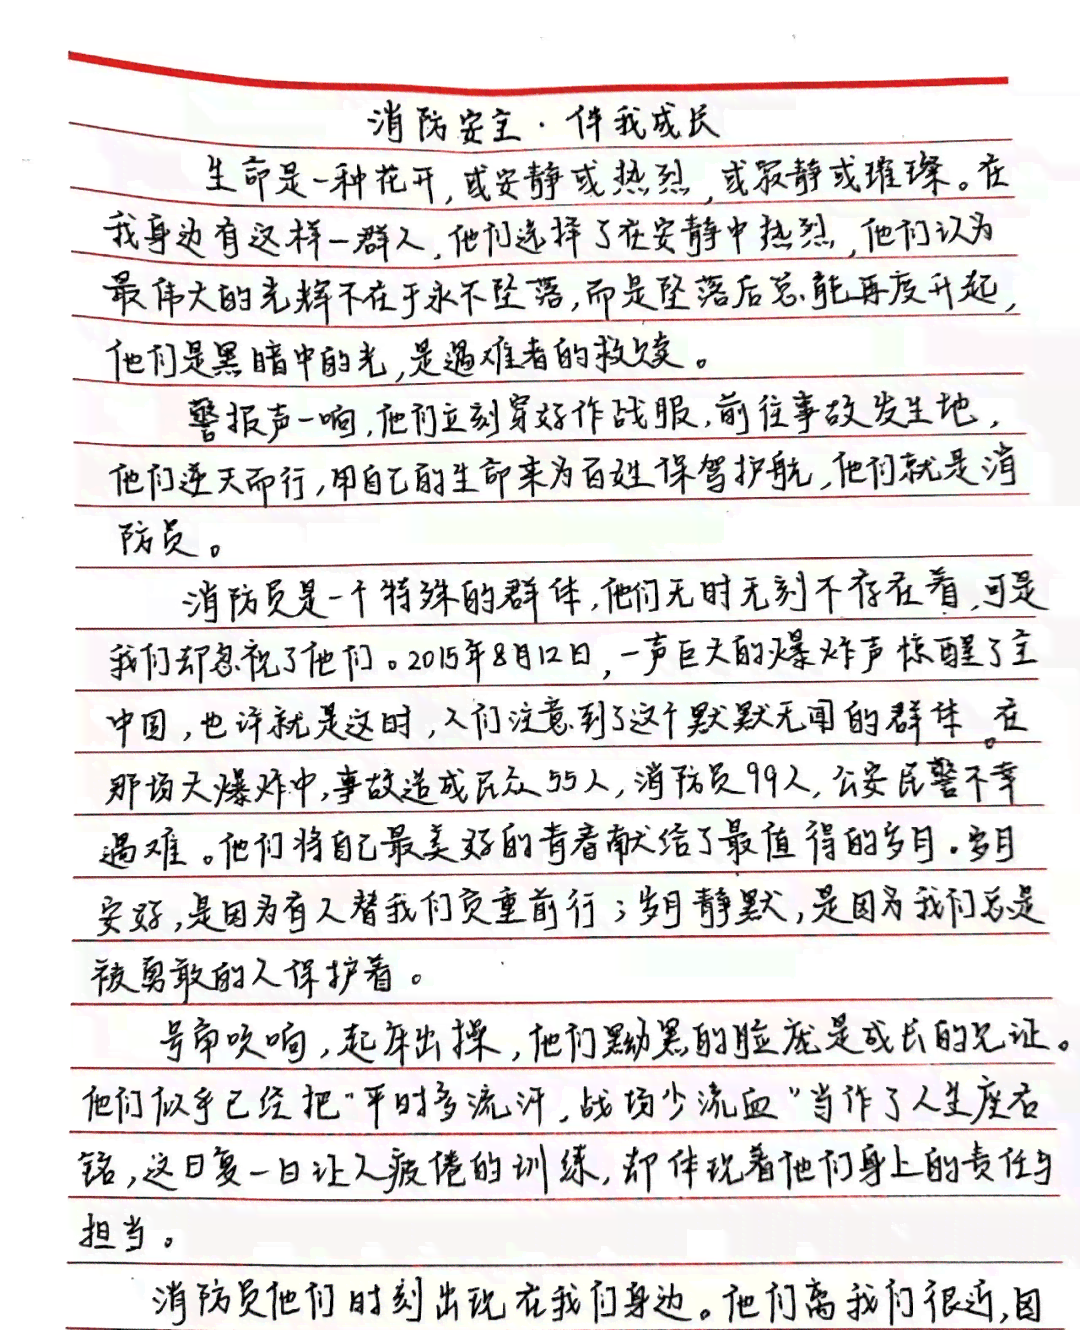 消防安全·伴我成长
生命是一种花开,或安静或热烈,或寂静或璀璨。在
我身边有这样一群人,他们选择了在安静中热烈,他们认为
最伟大的光辉不在于永不坠落,而是坠落后总能再度升起,
他们是黑暗中的光,是遇难者的救赎。
警报声一响,他们立刻穿好作战服,前往事故发生地,
他们逆天而行,用自己的生命来为百姓保驾护航,他们就是消
防员。
消防员是一个特殊的群体,他们无时无刻不存在着,可是
我们却忽视了他们。2015年8月12日,一声巨大的爆炸声惊醒了全
中国,也许就是这时,人们注意到了这个默默无闻的群体。在
那场大爆炸中,事故造成民众55人,消防员99人,公安民警不幸
遇难。他们将自己最美好的青春献给了最值得的岁月。岁月
安好,是因为有人替我们负重前行;岁月静默,是因为我们总是
被勇敢的人保护着。
号角吹响,起床出操,他们黝黑的脸庞是成长的见证。
他们似乎已经把“平时多流汗,战场少流血”当作了人生座右
铭,这日复一日让人疲倦的训练,却体现着他们身上的责任与
担当。
消防员他们时刻出现在我们身边。他们离我们很近,因